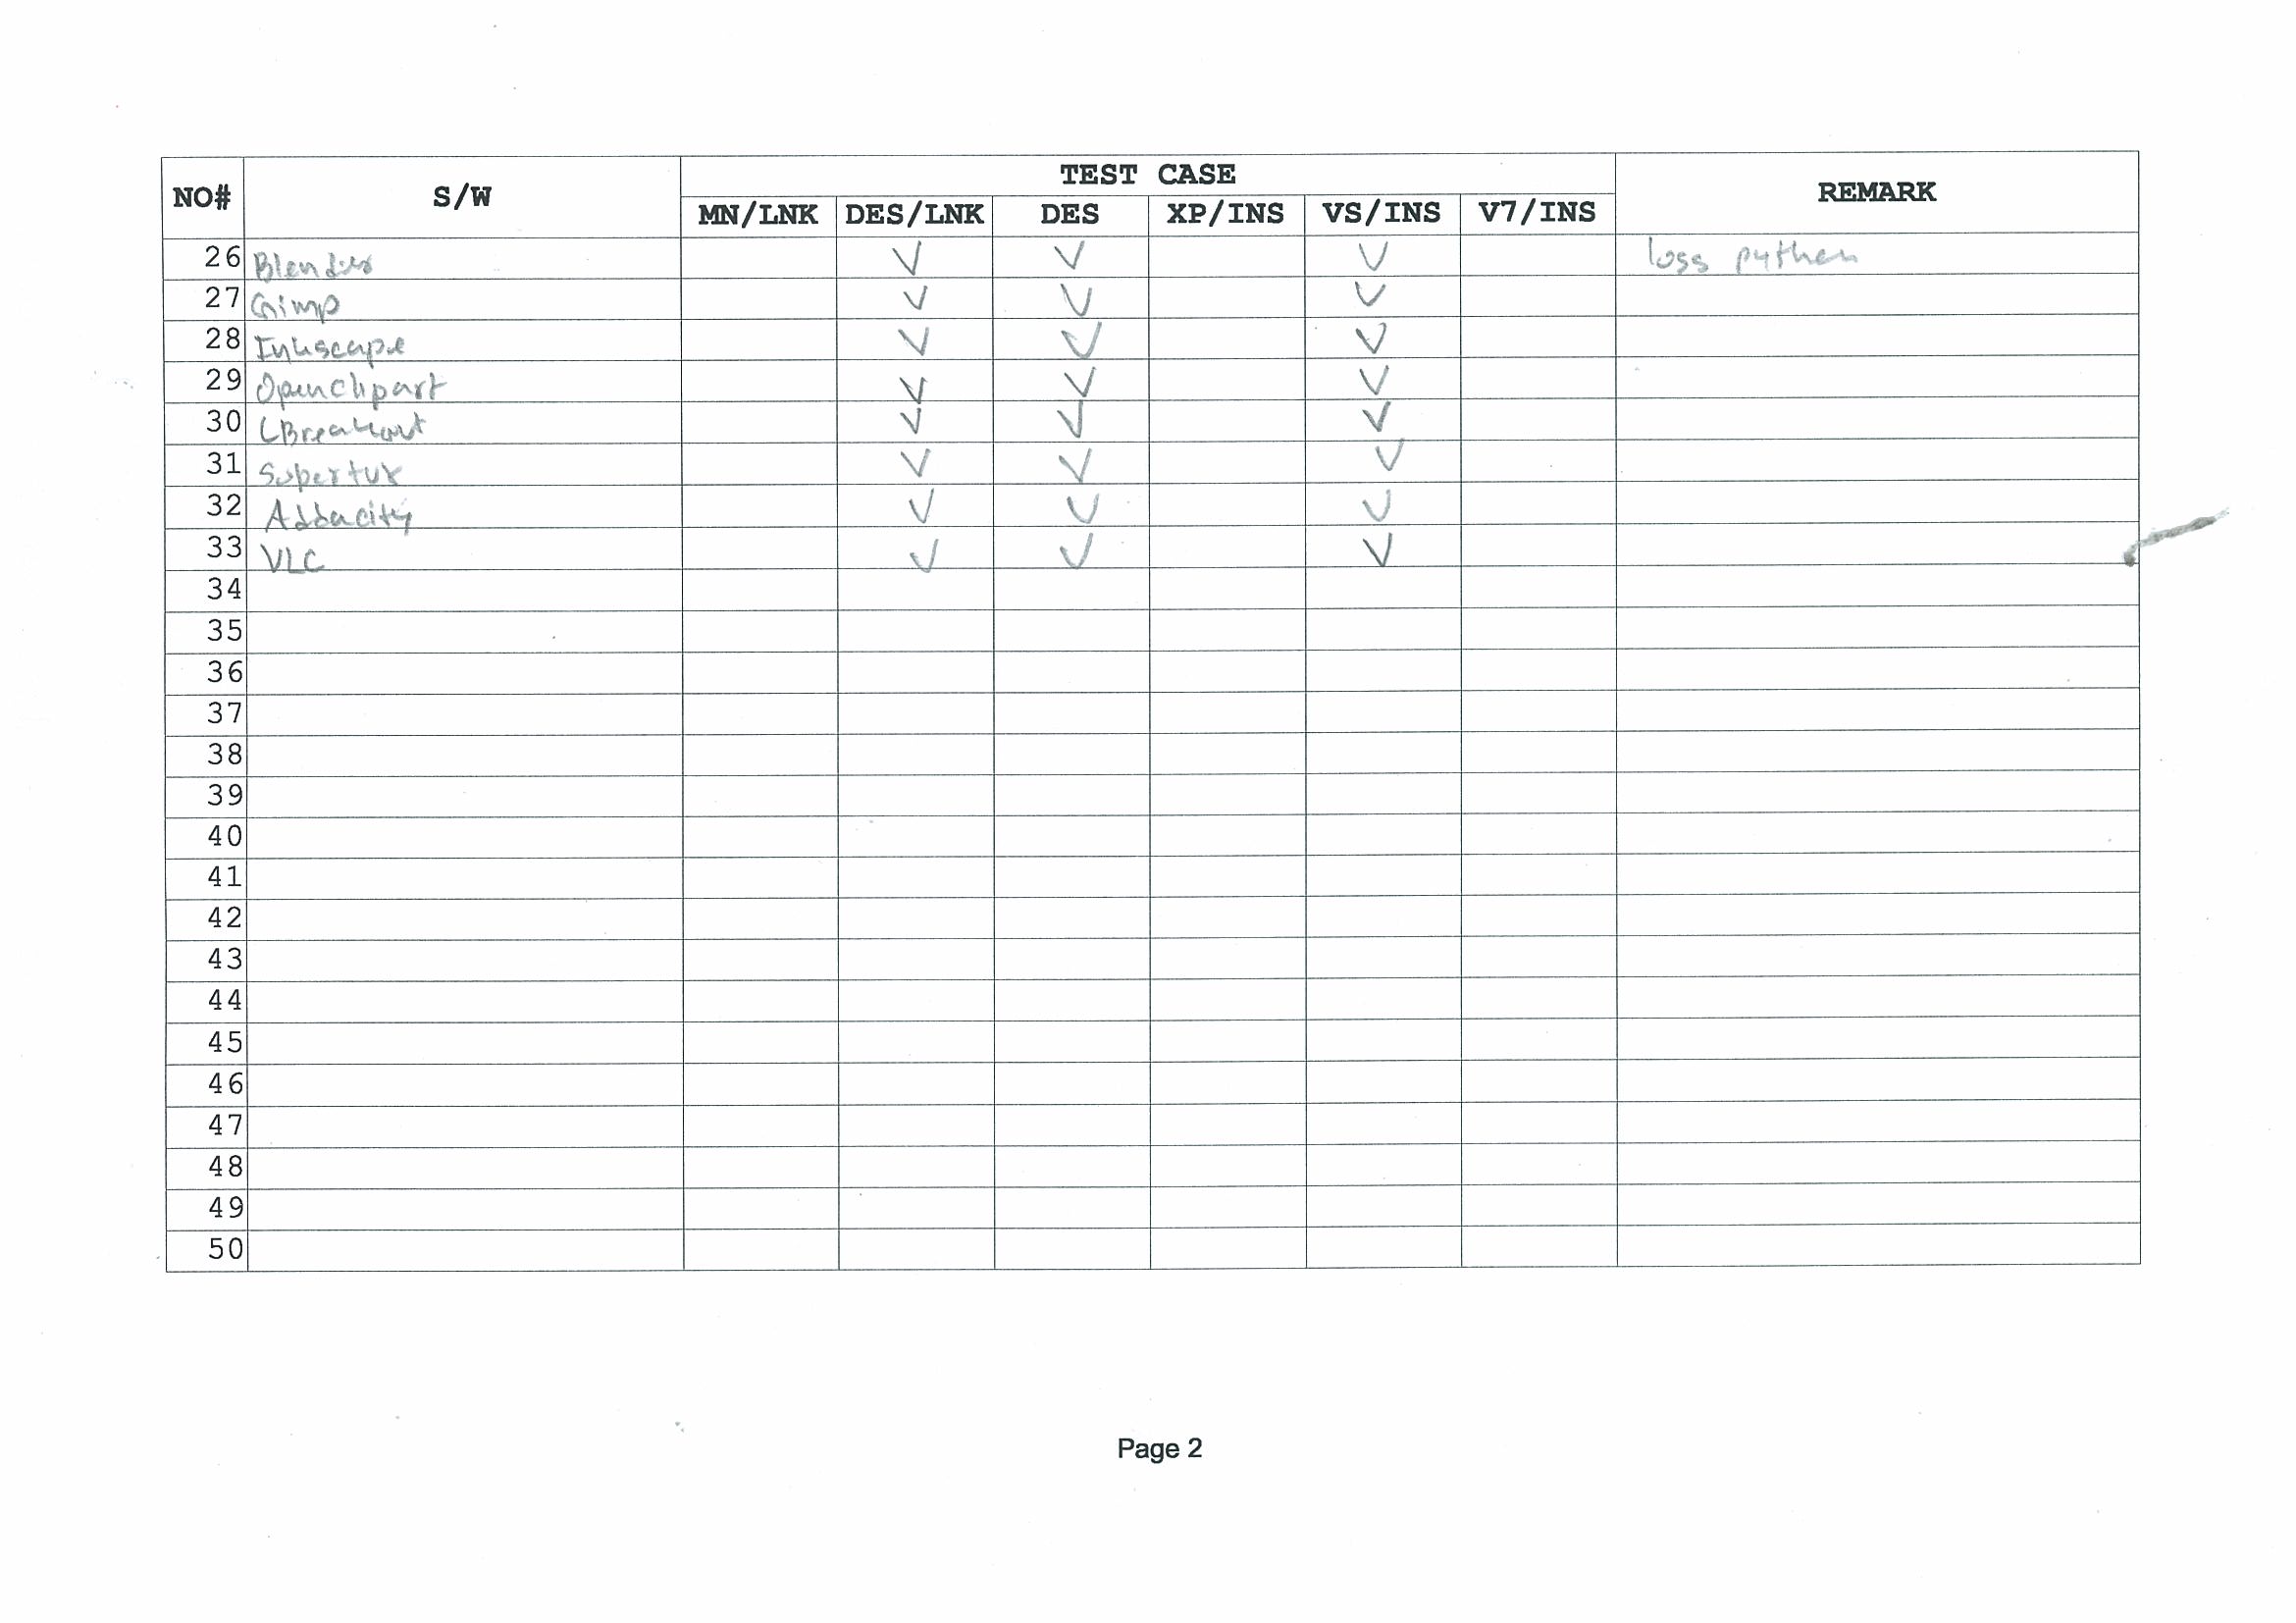 NO# S/W TEST CASE REMARK
MN/LNK DES/LNK DES XP/INS VS/INS V7/INS
26 Blender V V V loss python
27 Gimp V V V
28 Inkscape V V V
29 Openclipart V V V
30 LBreakout V V V
31 Supertux V V V
32 Addacity V V V
33 VLC V V V
34
35
36
37
38
39
40
41
42
43
44
45
46
47
48
49
50
Page 2